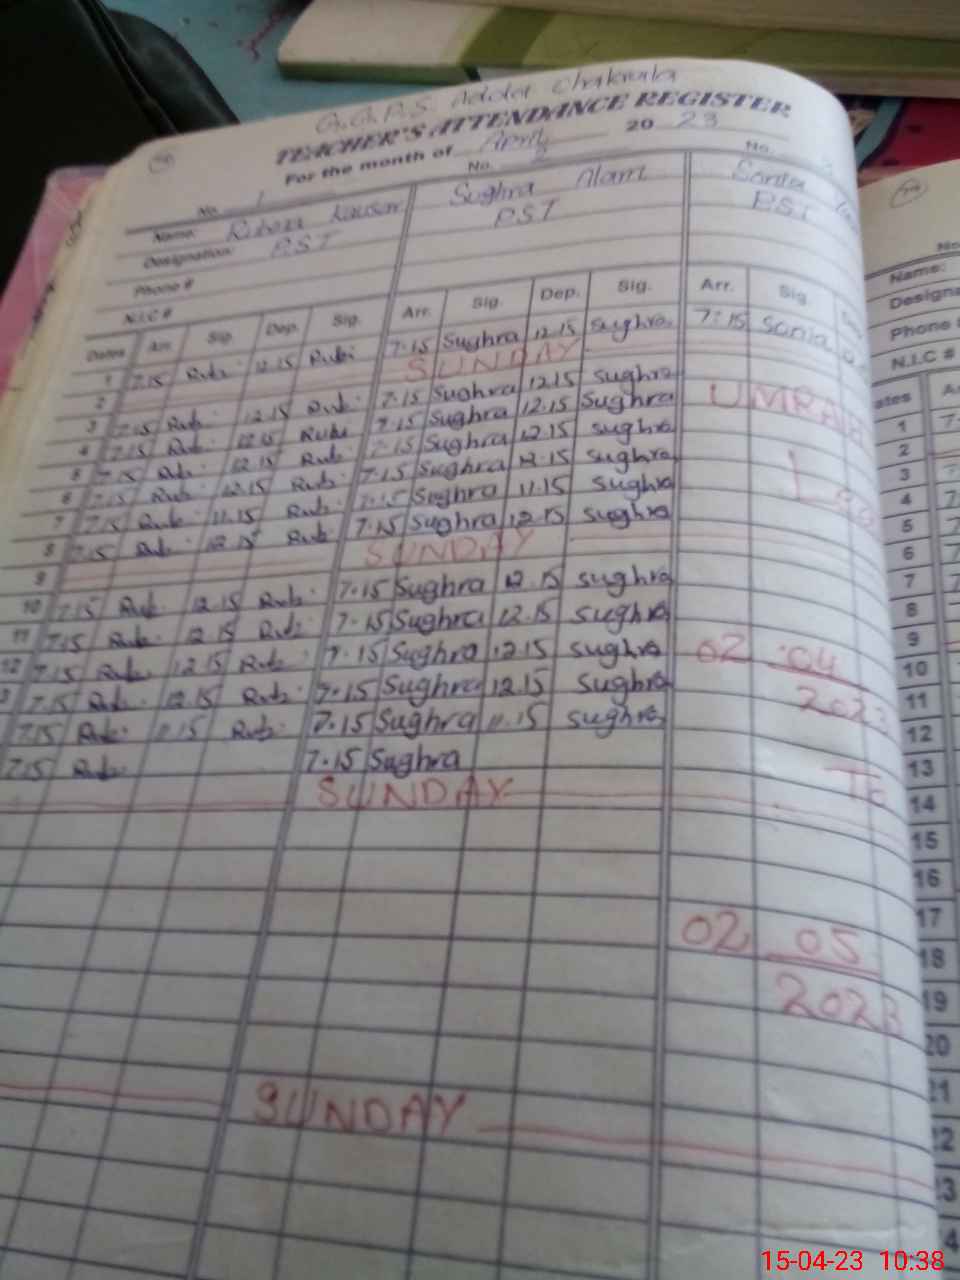 G.G.P.S. Adda Chakrala
TEACHER'S ATTENDANCE REGISTER
For the month of April 20 23
No. 1 No. 2 No. 3
Name: Kausar Sughra Alam Sania
Designation: P.S.T P.S.T P.S.T
Phone #
N.I.C #
Dates Arr. Sig. Dep. Sig. Arr. Sig. Dep. Sig. Arr. Sig.
1 7.15 Rub. 12.15 Rubi 7.15 Sughra 12.15 Sughra 7:15 Sania
2 SUNDAY
3 7.15 Rub. 12.15 Rub. 7.15 Sughra 12.15 Sughra UMRAH
4 7.15 Rub. 12.15 Rub. 7.15 Sughra 12.15 Sughra
5 7.15 Rub. 12.15 Rub. 7.15 Sughra 12.15 Sughra
6 7.15 Rub. 12.15 Rub. 7.15 Sughra 12.15 Sughra
7 7.15 Rub. 11.15 Rub. 7.15 Sughra 11.15 Sughra
8 7.15 Rub. 12.15 Rub. 7.15 Sughra 12.15 Sughra
9 SUNDAY
10 7.15 Rub. 12.15 Rub. 7.15 Sughra 12.15 Sughra
11 7.15 Rub. 12.15 Rub. 7.15 Sughra 12.15 Sughra
12 7.15 Rub. 12.15 Rub. 7.15 Sughra 12.15 Sughra 02 .04
3 7.15 Rub. 12.15 Rub. 7.15 Sughra 12.15 Sughra 2023
7.15 Rub. 11.15 Rub. 7.15 Sughra 11.15 Sughra
7.15 Rub. 7.15 Sughra To
SUNDAY
02 05
2023
SUNDAY
No.
Name:
Designa
Phone #
N.I.C #
ates
1
2
3
4
5
6
7
8
9
10
11
12
13
14
15
16
17
18
19
20
21
22
23
15-04-23 10:38